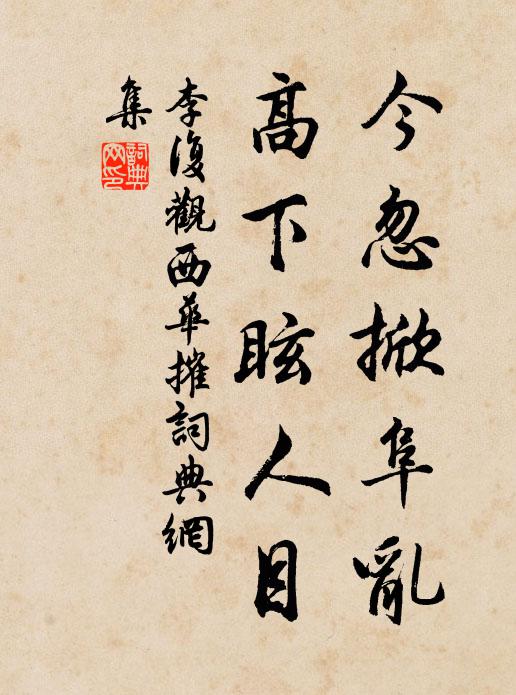 今忽掀阜亂
高下眩人目
李復觀西華摧詞典網
集
詞典網印